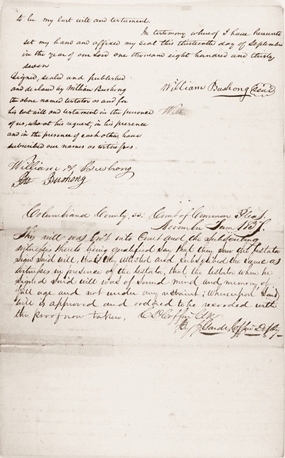 to be my last will and testament.
In testimony whereof I have hereunto
set my hand and affixed my seal this thirteenth day of September
in the year of our Lord one thousand eight hundred and thirty
seven
Signed, sealed and published
and declared by William Bushong William Bushong Seal
the above named testator as and for
his last will and testament in the presence
of us, who at his request, in his presence
and in the presence of each other have
subscribed our names as witnesses.
William Bushong
Jno Bushong
Columbiana County, ss. Court of Common Pleas
November Term 1837.
This will was Got into Court and the Subscribing
witnesses thereto being qualified Say that they Saw the Testator
sign Said will, that they attested and subscribed the same as
witnesses in presence of the testator, that the testator when he
signed Said will was of Sound mind and memory, of
full age and not under any restraint; Whereupon Said
will is approved and ordered to be recorded with
the proof now taken.